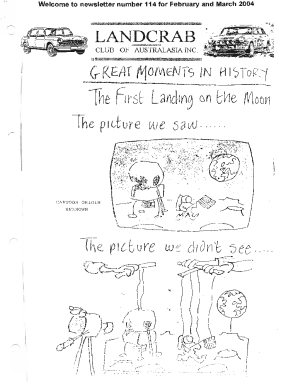 Welcome to newsletter number 114 for February and March 2004
LANDCRAB
CLUB OF AUSTRALASIA INC.
GREAT MOMENTS IN HISTORY
The First Landing on the Moon
The picture we saw......
The picture we didn't see.....